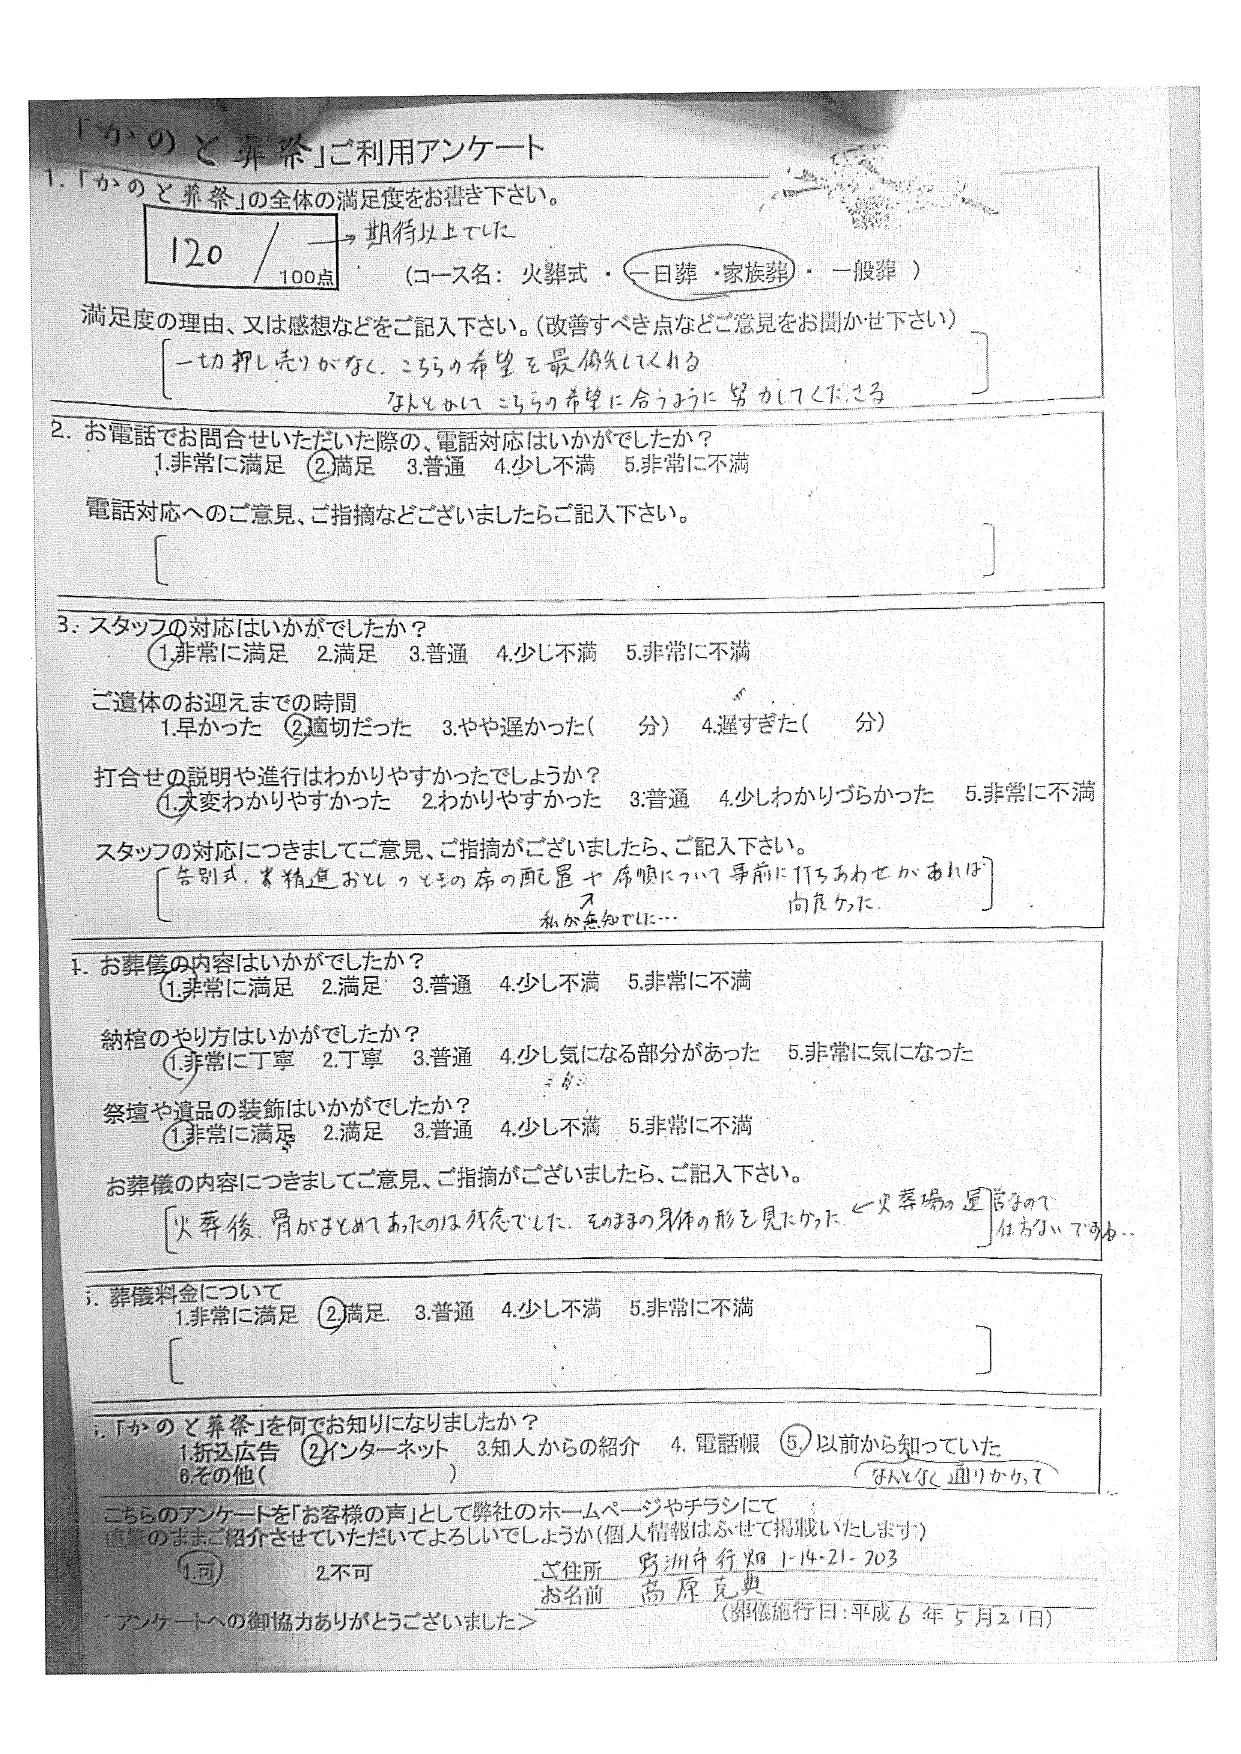 「かのと葬祭」ご利用アンケート
1.「かのと葬祭」の全体の満足度をお書き下さい。
120 / 100点 → 期待以上でした
(コース名: 火葬式 ・ 一日葬 ・家族葬 ・ 一般葬 )
満足度の理由、又は感想などをご記入下さい。(改善すべき点などご意見をお聞かせ下さい)
一切押し売りがなく、こちらの希望を最優先してくれる
なんとかして こちらの希望に合うように努力してくださる
2. お電話でお問合せいただいた際の、電話対応はいかがでしたか?
1.非常に満足 2.満足 3.普通 4.少し不満 5.非常に不満
電話対応へのご意見、ご指摘などございましたらご記入下さい。
3. スタッフの対応はいかがでしたか?
1.非常に満足 2.満足 3.普通 4.少し不満 5.非常に不満
ご遺体のお迎えまでの時間
1.早かった 2.適切だった 3.やや遅かった( 分) 4.遅すぎた( 分)
打合せの説明や進行はわかりやすかったでしょうか?
1.大変わかりやすかった 2.わかりやすかった 3.普通 4.少しわかりづらかった 5.非常に不満
スタッフの対応につきましてご意見、ご指摘がございましたら、ご記入下さい。
告別式、精進おとしのときの席の配置や席順について事前に打ちあわせがあれば
尚良かった
私が無知でした…
4. お葬儀の内容はいかがでしたか?
1.非常に満足 2.満足 3.普通 4.少し不満 5.非常に不満
納棺のやり方はいかがでしたか?
1.非常に丁寧 2.丁寧 3.普通 4.少し気になる部分があった 5.非常に気になった
祭壇や遺品の装飾はいかがでしたか?
1.非常に満足 2.満足 3.普通 4.少し不満 5.非常に不満
お葬儀の内容につきましてご意見、ご指摘がございましたら、ご記入下さい。
火葬後、骨がまとめてあったのは残念でした。そのままの身体の形を見たかった ←火葬場の運営なので
仕方ないですね…
葬儀料金について
1.非常に満足 2.満足 3.普通 4.少し不満 5.非常に不満
「かのと葬祭」を何でお知りになりましたか?
1.折込広告 2.インターネット 3.知人からの紹介 4. 電話帳 5. 以前から知っていた
6.その他( )
なんとなく通りかかって
こちらのアンケートを「お客様の声」として弊社のホームページやチラシにて
直筆のままご紹介させていただいてよろしいでしょうか(個人情報はふせて掲載いたします)
1.可 2.不可
ご住所 野洲市行畑 1-14-21-703
お名前 高原克典
アンケートへの御協力ありがとうございました> (葬儀施行日:平成6年5月21日)